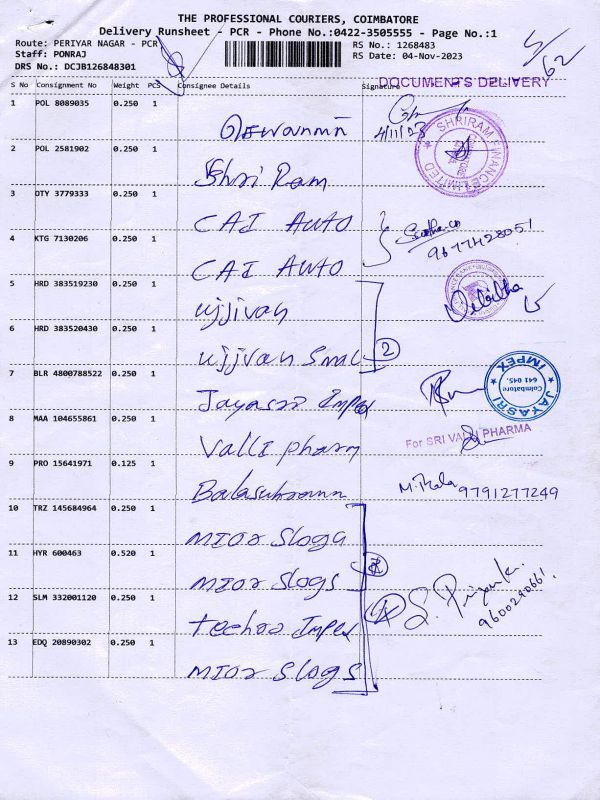 THE PROFESSIONAL COURIERS, COIMBATORE
Delivery Runsheet - PCR - Phone No.:0422-3505555 - Page No.:1
Route: PERIYAR NAGAR - PCR RS No.: 1268483
Staff: PONRAJ RS Date: 04-Nov-2023
DRS No.: DCJB126848301
5/62
DOCUMENTS DELIVERY
S No Consignment No Weight PCS Consignee Details Signature
1 POL 8089035 0.250 1
4/11/23
SHRIRAM FINANCE LIMITED
2 POL 2581902 0.250 1 Shri Ram
3 DTY 3779333 0.250 1 CAI AUTO
9677428051
4 KTG 7130206 0.250 1 CAI AUTO
5 HRD 383519230 0.250 1 ujjivan
6 HRD 383520430 0.250 1 ujjivan Smal
2
7 BLR 4800788522 0.250 1 Jayasri Impex
JAYASRI IMPEX
Coimbatore
641 045.
8 MAA 104655861 0.250 1 Valli pharm
For SRI VALLI PHARMA
9 PRO 15641971 0.125 1
M. Bala 9791277249
10 TRZ 145684964 0.250 1
11 HYR 600463 0.520 1
S. Priyanka
9600290661.
12 SLM 332001120 0.250 1 Impex
13 EDQ 20890302 0.250 1